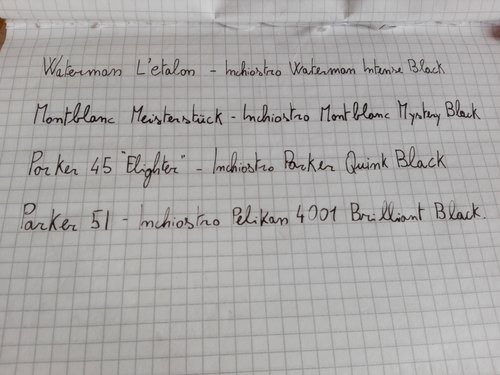 Waterman L'etalon - Inchiostro Waterman Intense Black
Montblanc Meisterstück - Inchiostro Montblanc Mystery Black
Parker 45 "Flighter" - Inchiostro Parker Quink Black
Parker 51 - Inchiostro Pelikan 4001 Brilliant Black.